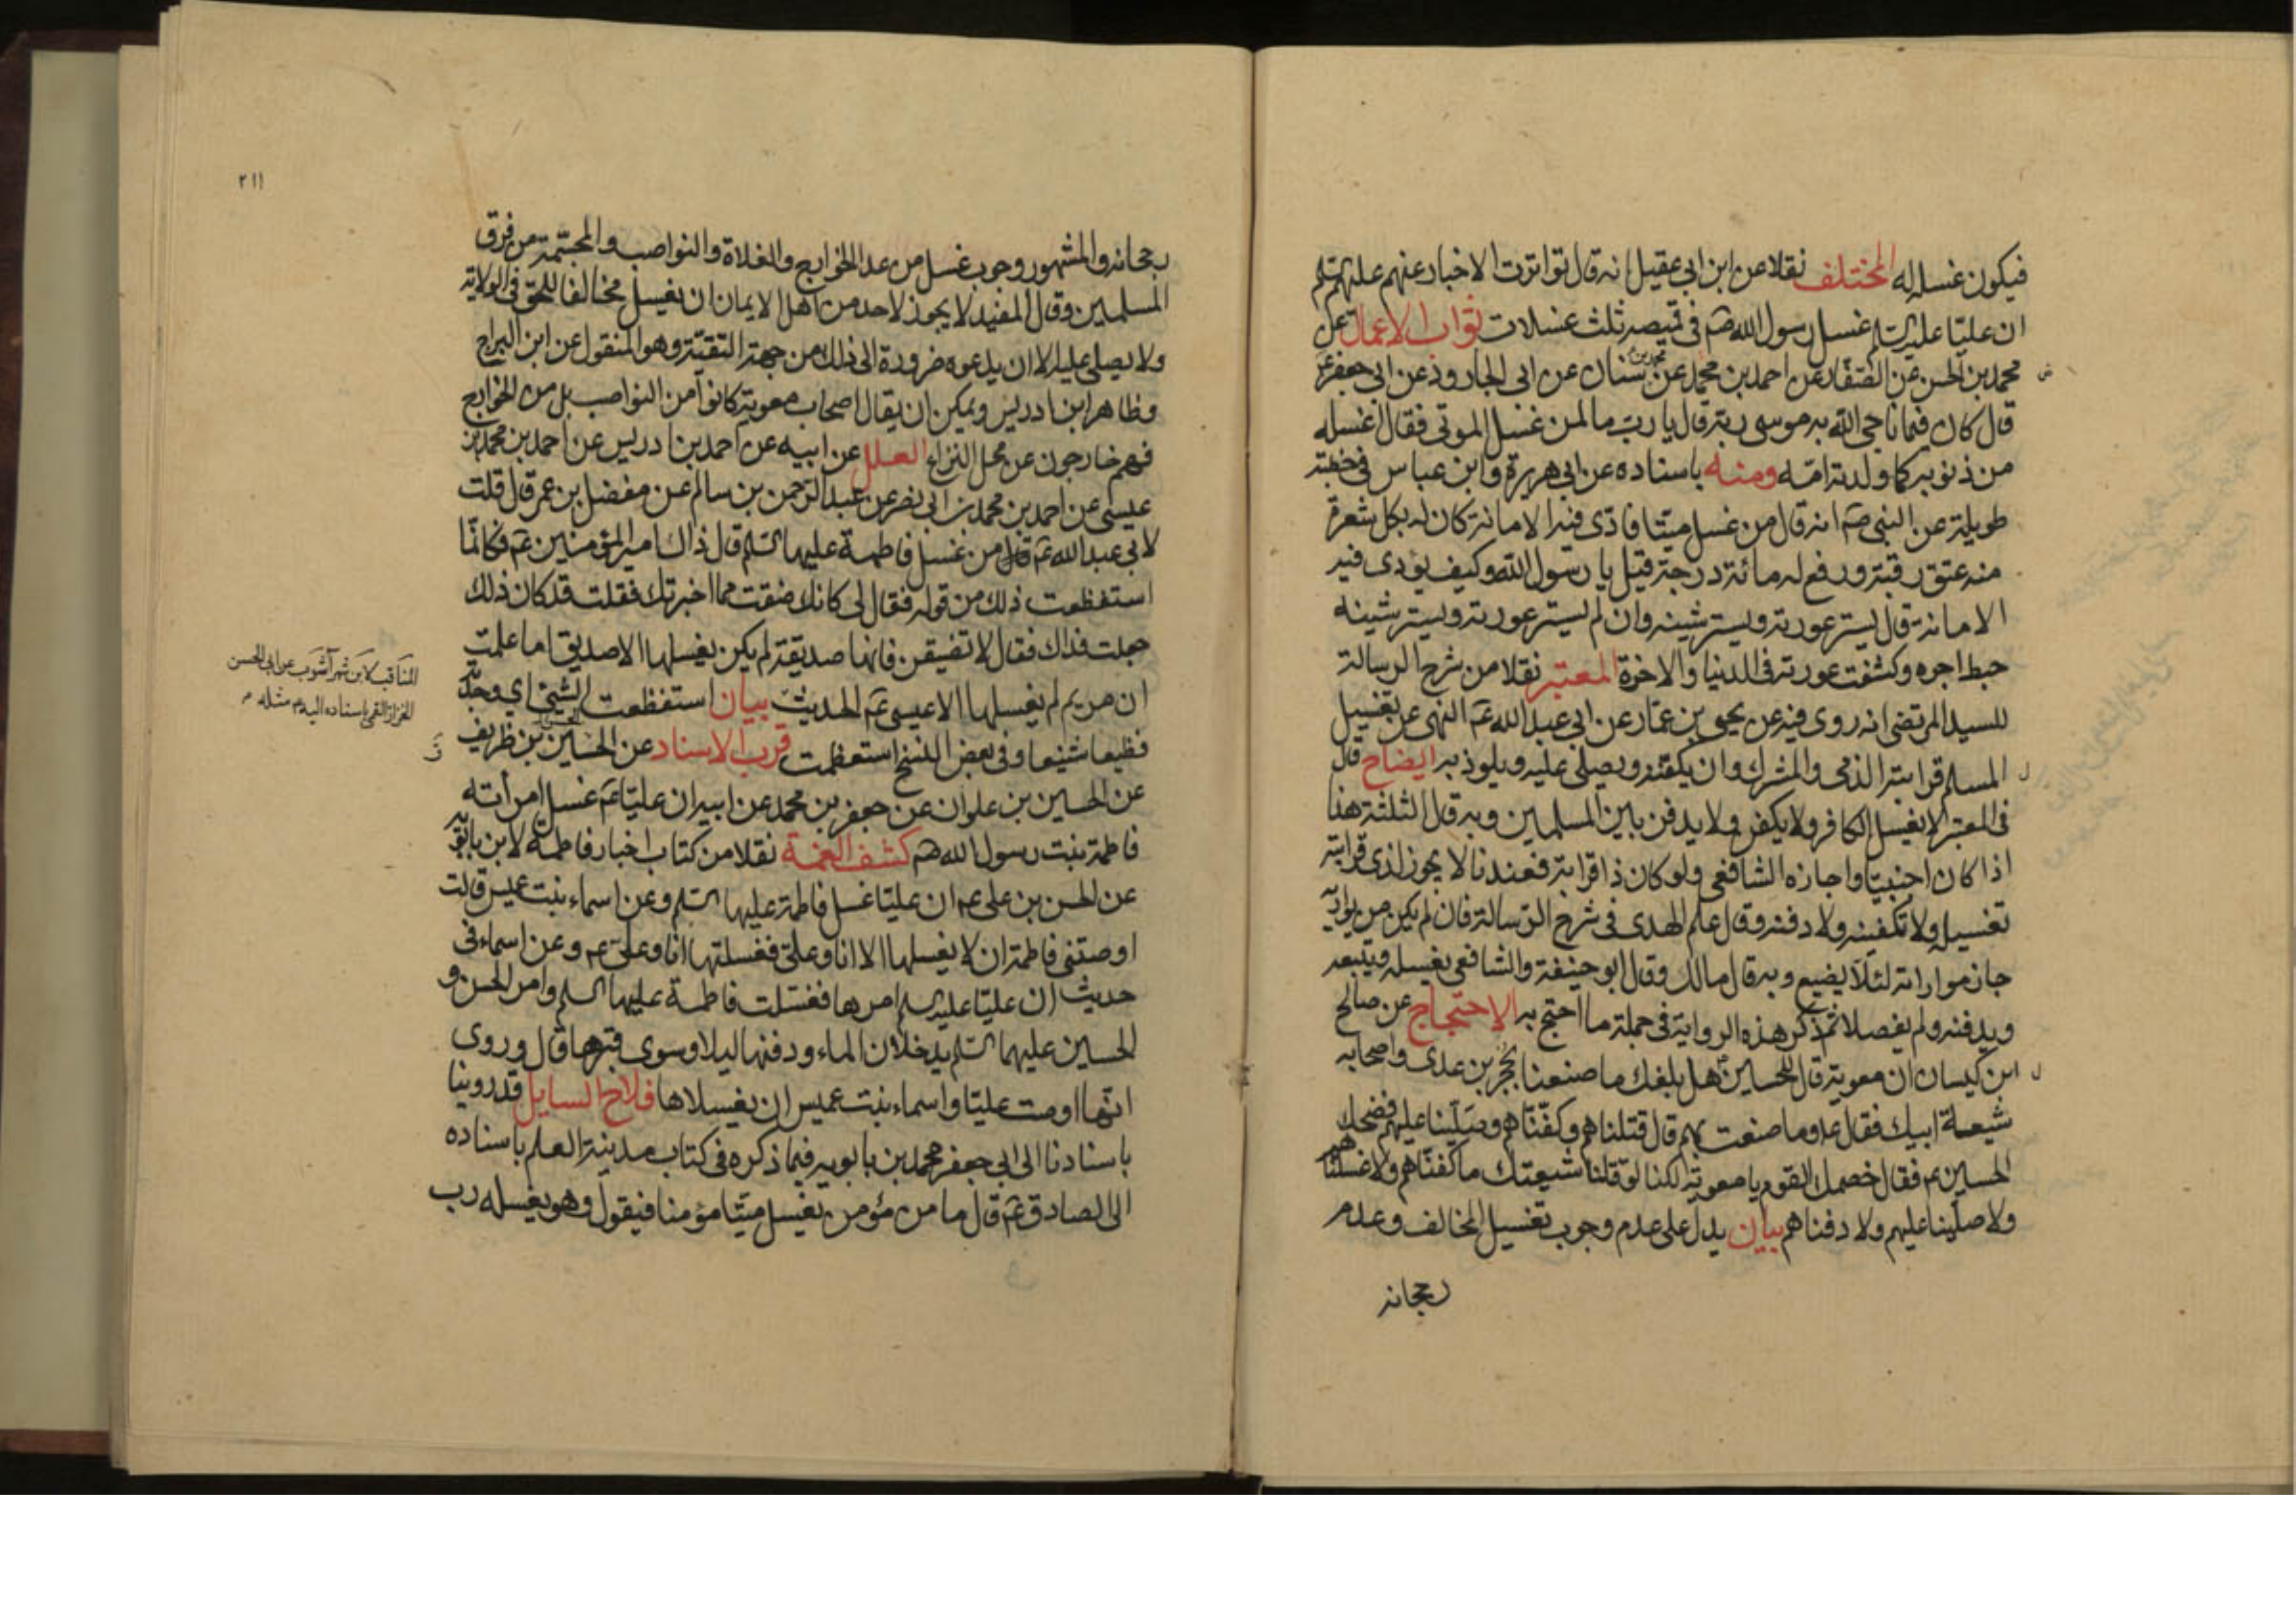 فيكون غسله له المختلف نقلا عن ابن ابي عقيل انه قال تواترت الاخبار عنهم عليهم السلم
ان عليّا عليه السلم غسل رسول الله صم في قميصه ثلث غسلات ثواب الاعمال عن
محمد بن الحسن عن الصفّار عن احمد بن محمد عن محمد بن سنان عن ابى الجارود عن ابى جعفر عم
قال كان فيما ناجى الله به موسى ربه قال يا رب ما لمن غسل الموتى فقال اغسله
من ذنوبه كما ولدته امّه ومنه باسناده عن ابى هريرة وابن عباس فى خطبة
طويلة عن النبى صم انه قال من غسل ميّتا فادّى فيه الامانة كان له بكل شعرة
منه عتق رقبة ورفع له مائة درجة قيل يا رسول الله وكيف يؤدى فيه
الامانة قال يستر عورته ويستر شينه وان لم يستر عورته ويستر شينه
حبط اجره وكشفت عورته فى الدنيا والاخرة المعتبر نقلا من شرح الرسالة
للسيد المرتضى انه روى فيه عن يحيى بن عمّار عن ابى عبد الله عم النهى عن تغسيل
المسلم قرابته الذمى والمشرك وان يكفنه ويصلى عليه ويلوذ به ايضاح قال
فى المعتبر لا يغسل الكافر ولا يكفن ولا يدفن بين المسلمين وبه قال الثلثة هذا
اذا كان اجنبيّا واجازه الشافعى ولو كان ذا قرابة فعندنا لا يجوز لذى قرابته
تغسيله ولا تكفينه ولا دفنه وقال علم الهدى فى شرح الرّسالة فان لم يكن من يواريه
جاز مواراته لئلا يضيع وبه قال مالك وقال ابو حنيفة والشافعى يغسله ويتبعه
ويدفنه ولم يفصلا ثم ذكر هذه الرواية فى جملة ما احتج به الاحتجاج عن صالح
ابن كيسان ان معوية قال للحسين عم هل بلغك ما صنعنا بحجر بن عدى واصحابه
شيعة ابيك فقال عم وما صنعت بهم قال قتلناهم وكفّنّاهم وصلّينا عليهم فضحك
الحسين عم فقال خصمك القوم يا معوية لكنا لو قتلنا شيعتك ما كفنّاهم ولا غسلناهم
ولا صلّينا عليهم ولا دفناهم بيان يدل على عدم وجوب تغسيل المخالف وعدم
رجحانه
٢١١
رجحانه والمشهور وجوب غسل من عدا الخوارج والغلاة والنواصب والمجسّمة من فرق
المسلمين وقال المفيد لا يجوز لاحد من اهل الايمان ان يغسل مخالفا للحق فى الولاية
ولا يصلى عليه الا ان يدعوه ضرورة الى ذلك من جهة التقيّة وهو المنقول عن ابن البراج
وظاهر ابن ادريس ويمكن ان يقال اصحاب معوية كانوا من النواصب بل من الخوارج
فهم خارجون عن محل النزاع العلل عن ابيه عن احمد بن ادريس عن احمد بن محمد بن
عيسى عن احمد بن محمد بن ابى نصر عن عبد الرّحمن بن سالم عن مفضل بن عمر قال قلت
لابى عبد الله عم من غسل فاطمة عليها السلم قال ذاك امير المؤمنين عم فكانّما
استفظعت ذلك من قوله فقال لى كانك ضقت مما اخبرتك فقلت قد كان ذلك
جعلت فداك فقال لا تضيقن فانها صديقة لم يكن يغسلها الا صديق اما علمت
ان مريم لم يغسلها الا عيسى عم الحديث بيان استفظعت الشئ اي وجدته
فظيعا شنيعا وفى بعض النسخ استعظمت قرب الاسناد عن الحسين بن ظريف
عن الحسين بن علوان عن جعفر بن محمد عن ابيه ان عليّا عم غسل امرأته
فاطمة بنت رسول الله صم كشف الغمة نقلا من كتاب اخبار فاطمة لابن بابويه
عن الحسن بن على عم ان عليّا غسل فاطمة عليها السلم وعن اسماء بنت عميس قالت
اوصتنى فاطمة ان لا يغسلها الا انا وعلىّ فغسلتها انا وعلىّ عم وعن اسماء فى
حديث ان عليّا عليه السلم امرها فغسلت فاطمة عليها السلم وامر الحسن و
الحسين عليهما السلم يدخلان الماء ودفنها ليلا وسوى قبرها قال وروى
انها اوصت عليّا واسماء بنت عميس ان يغسلاها فلاح السايل قد روينا
باسنادنا الى ابى جعفر محمد بن بابويه فيما ذكره فى كتاب مدينة العلم باسناده
الى الصادق عم قال ما من مؤمن يغسل ميّتا مؤمنا فيقول وهو يغسله رب
المناقب لابن شهر آشوب عن ابى الحسن
الخزاز القمى باسناده اليه عم مثله